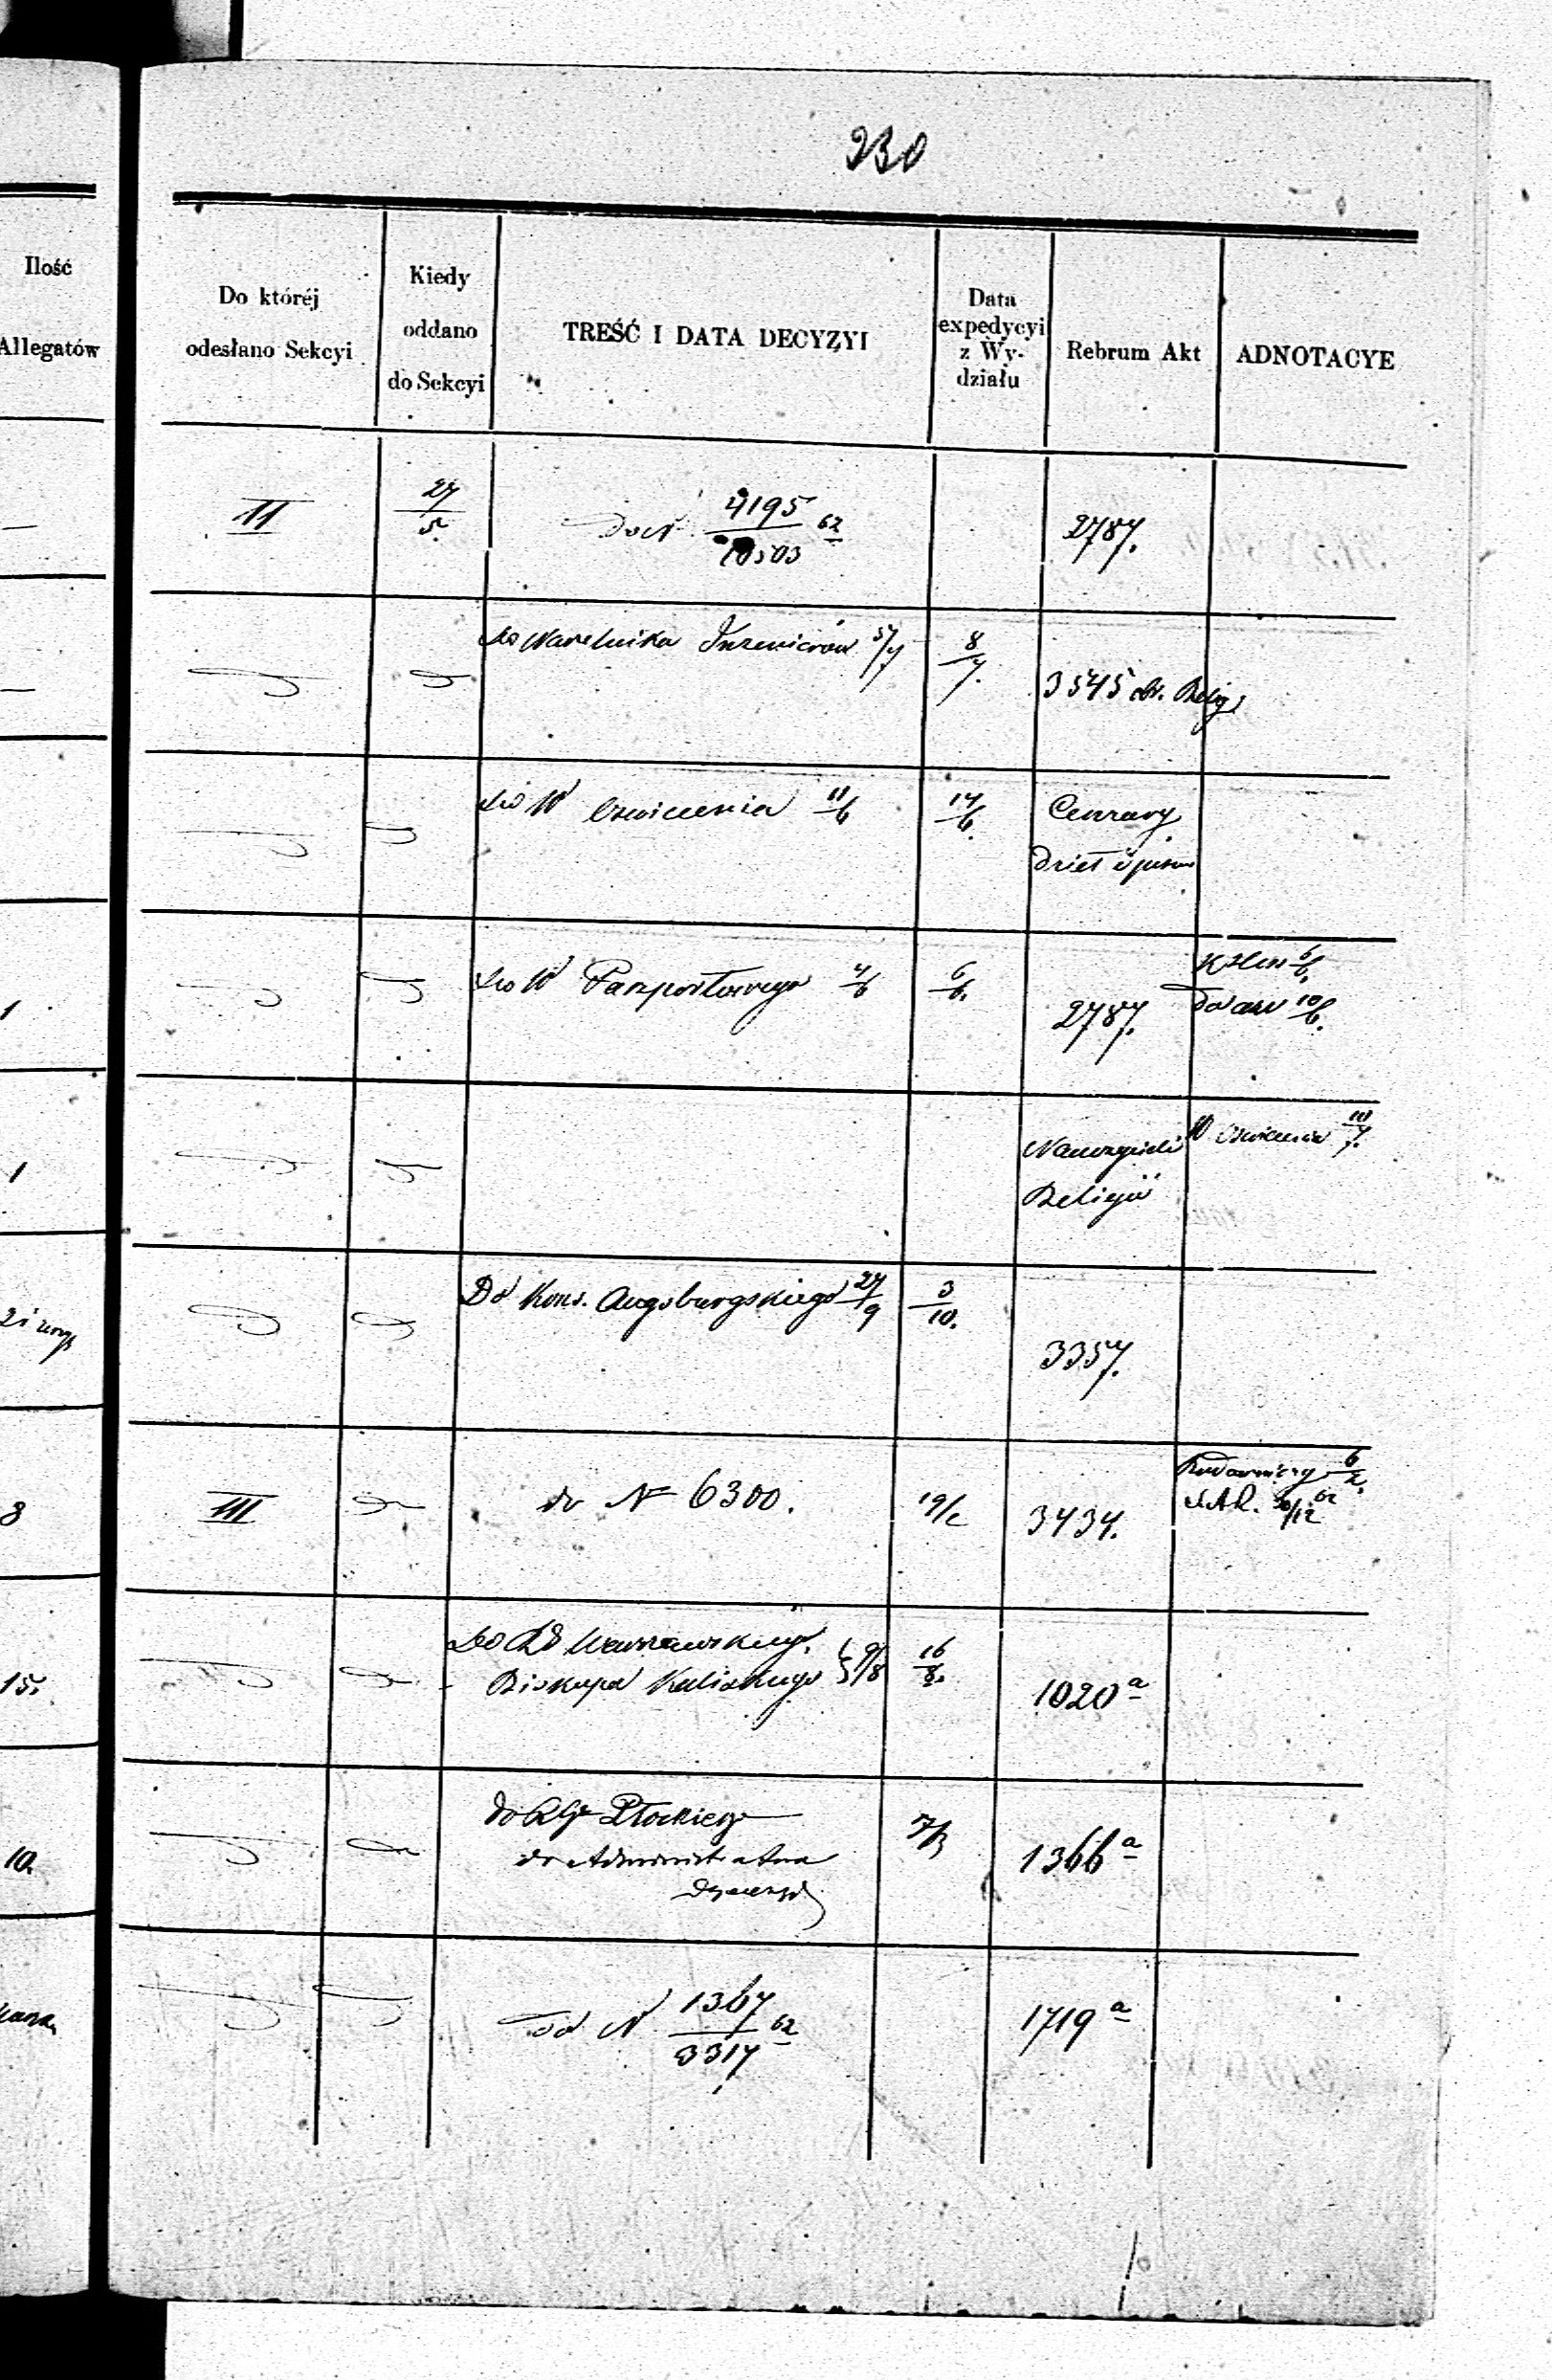 230
Ilość
Allegatów
Do któréj
odesłano Sekcyi
Kiedy
oddano
do Sekcyi
TREŚĆ I DATA DECYZYI
Data
expedycyi
z Wy-
działu
Rebrum Akt
ADNOTACYE
—
II
27/5.
Do N 4195/10503 62
2787.
—
Do Naczelnika Inżenierów 5/7
8/7.
3545 Relig
Do W Oświecenia 11/6
14/6.
Cenzury
Dzieł i pism
1
Do W Paszportowego 4/6
6/6.
2787.
6/6.
10/6.
1
Nauczyciele
Religii
W Oświecenia 10/7.
2 i
Do Kons. Augsburgskiego 27/9
3/10.
3357.
8
III
do N 6300.
19/
3434.
15.
Do Warszawskiego.
Biskupa Kaliskiego 9/8
16/8.
1020 a
10
Do Płockiego
do Administratora
Dyecezyi
1366 a
od N 1367/3317 62
1719 a